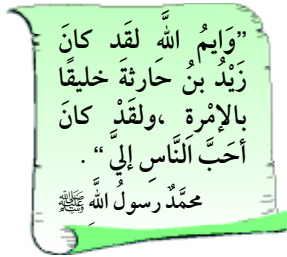 ”وَايمُ اللَّهِ لقَد كانَ
زَيْدُ بنُ حَارثةَ خليقًا
بالإمْرةِ ،ولقَدْ كانَ
أحَبَّ النَّاسِ إليَّ“ .
محمَّدٌ رسولُ اللَّهِ ﷺ